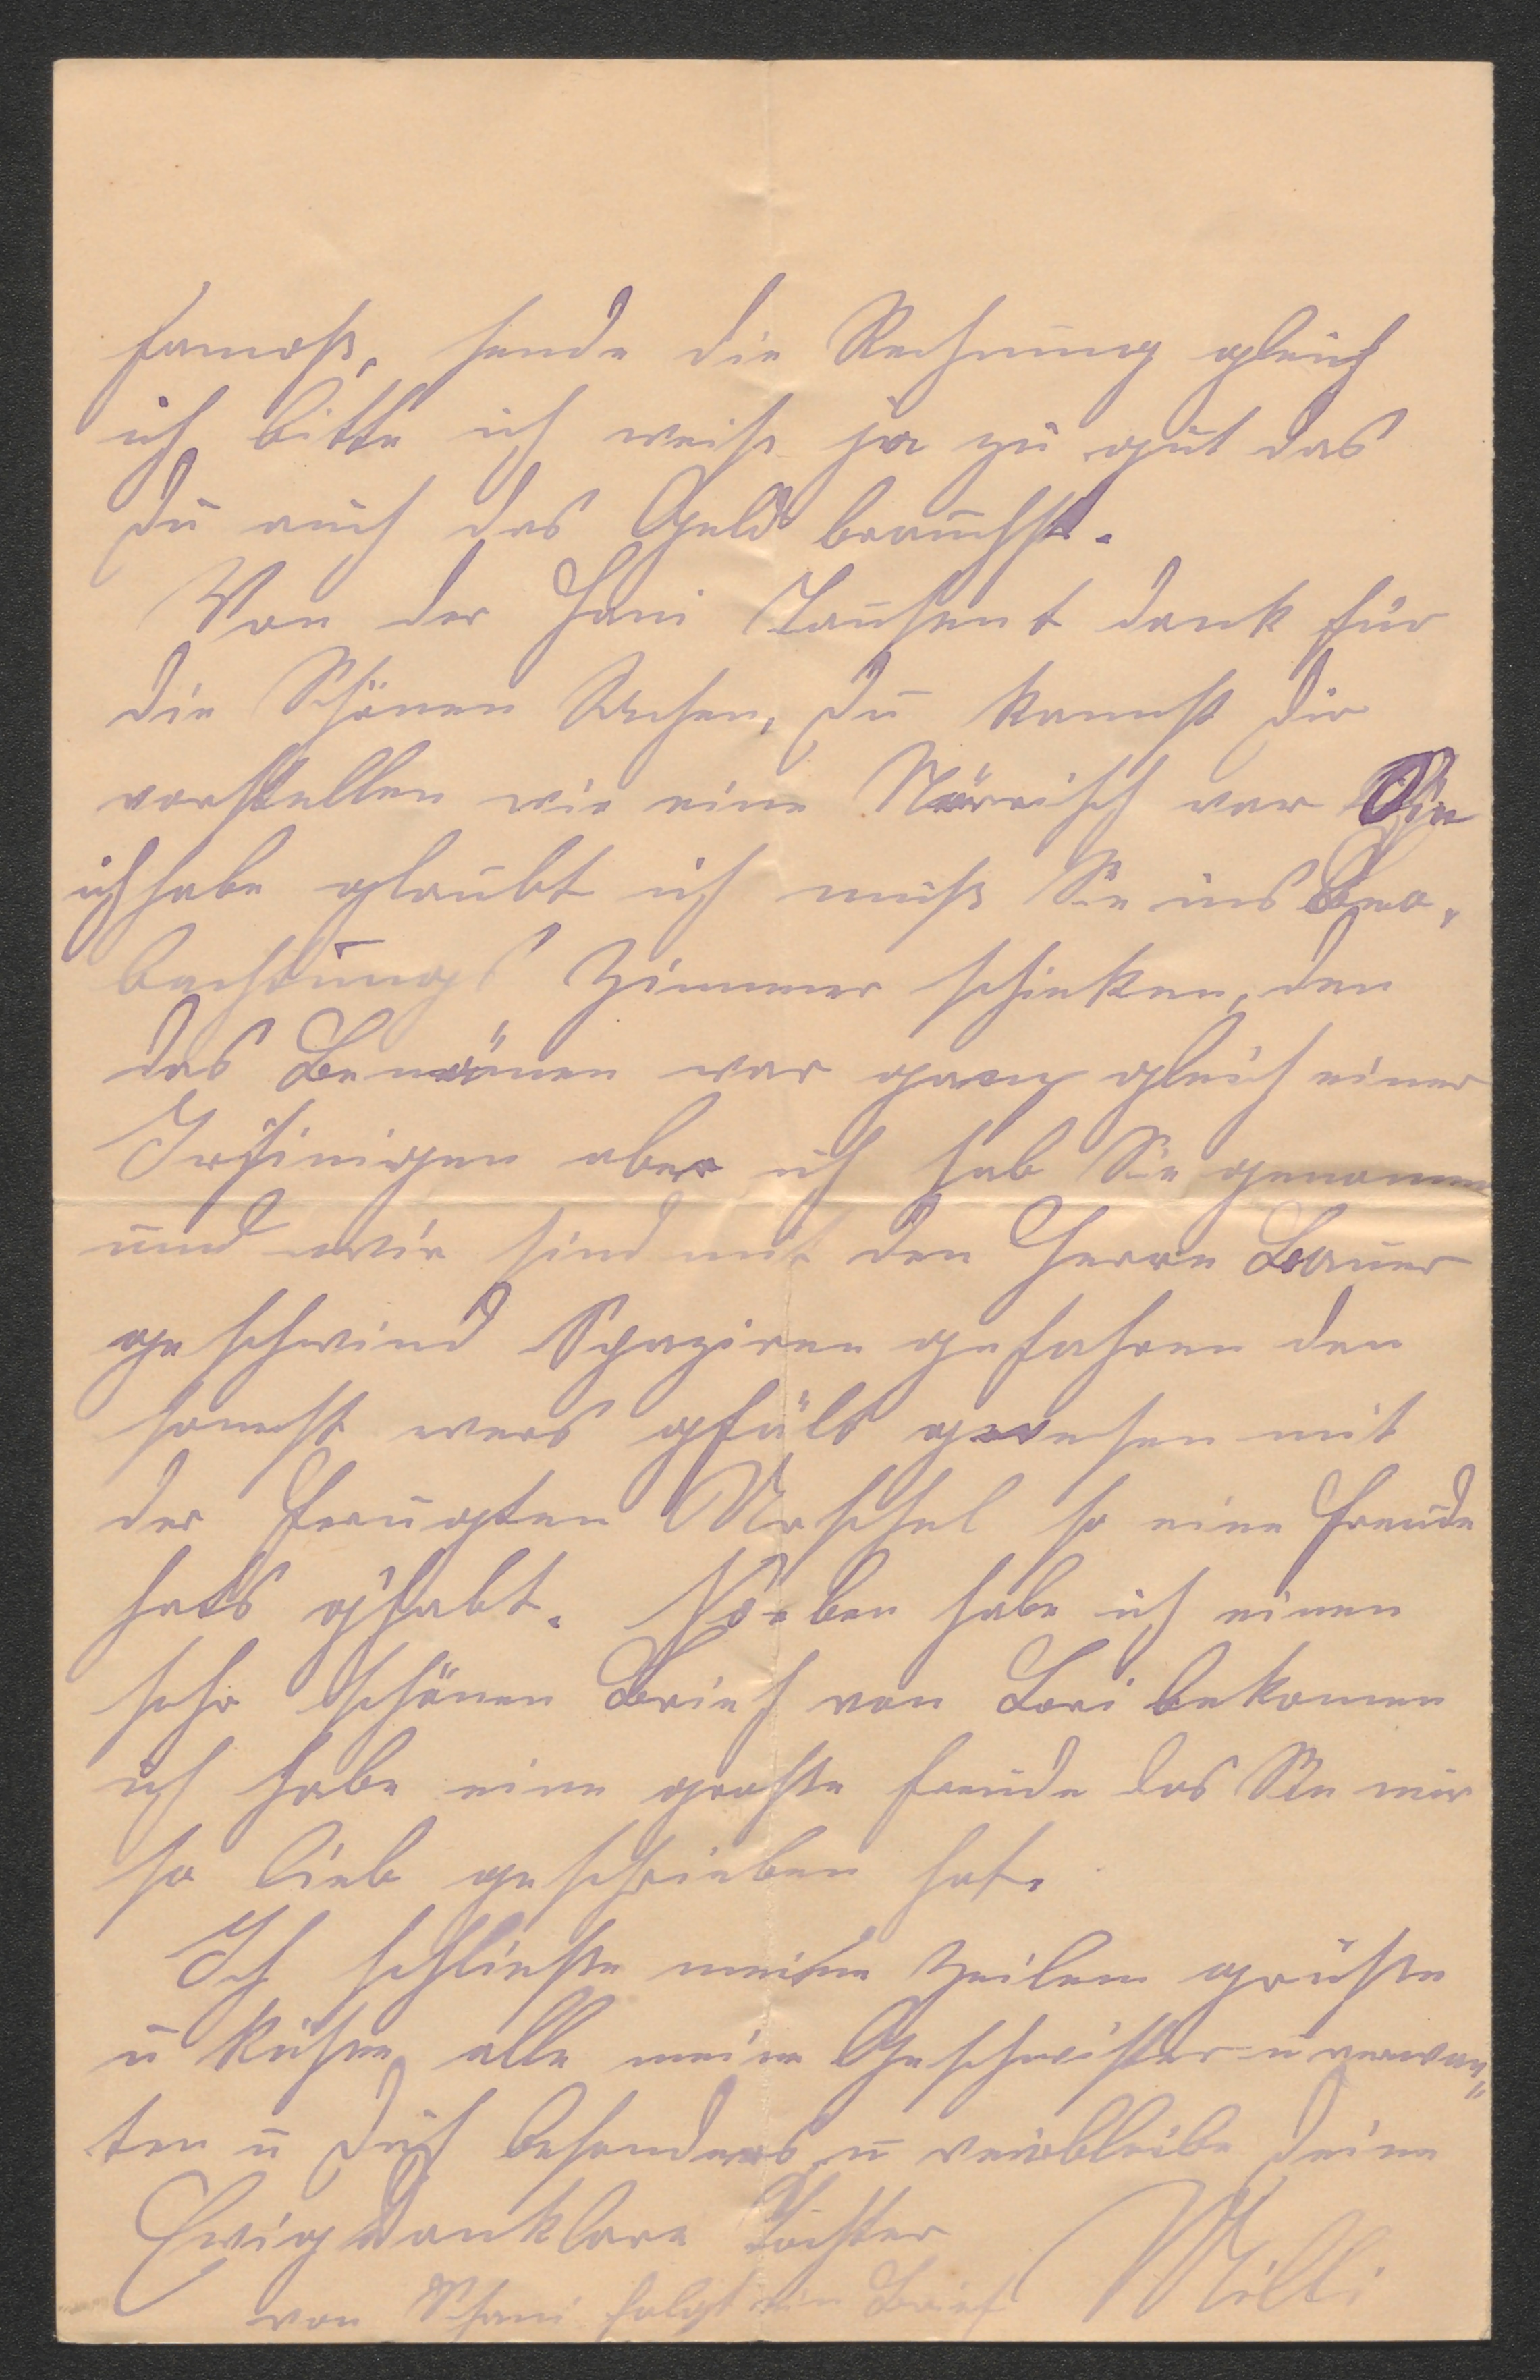 famoß, sende die Rechnung gleich
ich bitte ich weiß ja zu gut das
du auch das Geld brauchst.
Von der Hani Tausent dank für
die Schönen Sachen, du kannst dir
vorstellen wie eine Närrisch war Sie
ich habe glaubt ich muß Sie ins Beo,
bachtungs Zimmer schicken, den
das Benönen war ganz gleich einer
Irsinigen aber ich hab Sie genomen
und wir sind mit den Herrn Bauer
geschwind Spaziren gefahren den
sonnst wers gfält gewesen mit
der so eine freude
hats g'habt. So-eben habe ich einen
sehr schönen Brief von Lori bekomen
ich habe eine große freude das Sie mir
so lieb geschrieben hat.
Ich schließe meine Zeilen grüße
u küße alle meine Geschwister u verwan„
ten u dich besonders u verbleibe deine
Ewig dankbare Tochter
Milli
von Schani folgt ein Brief